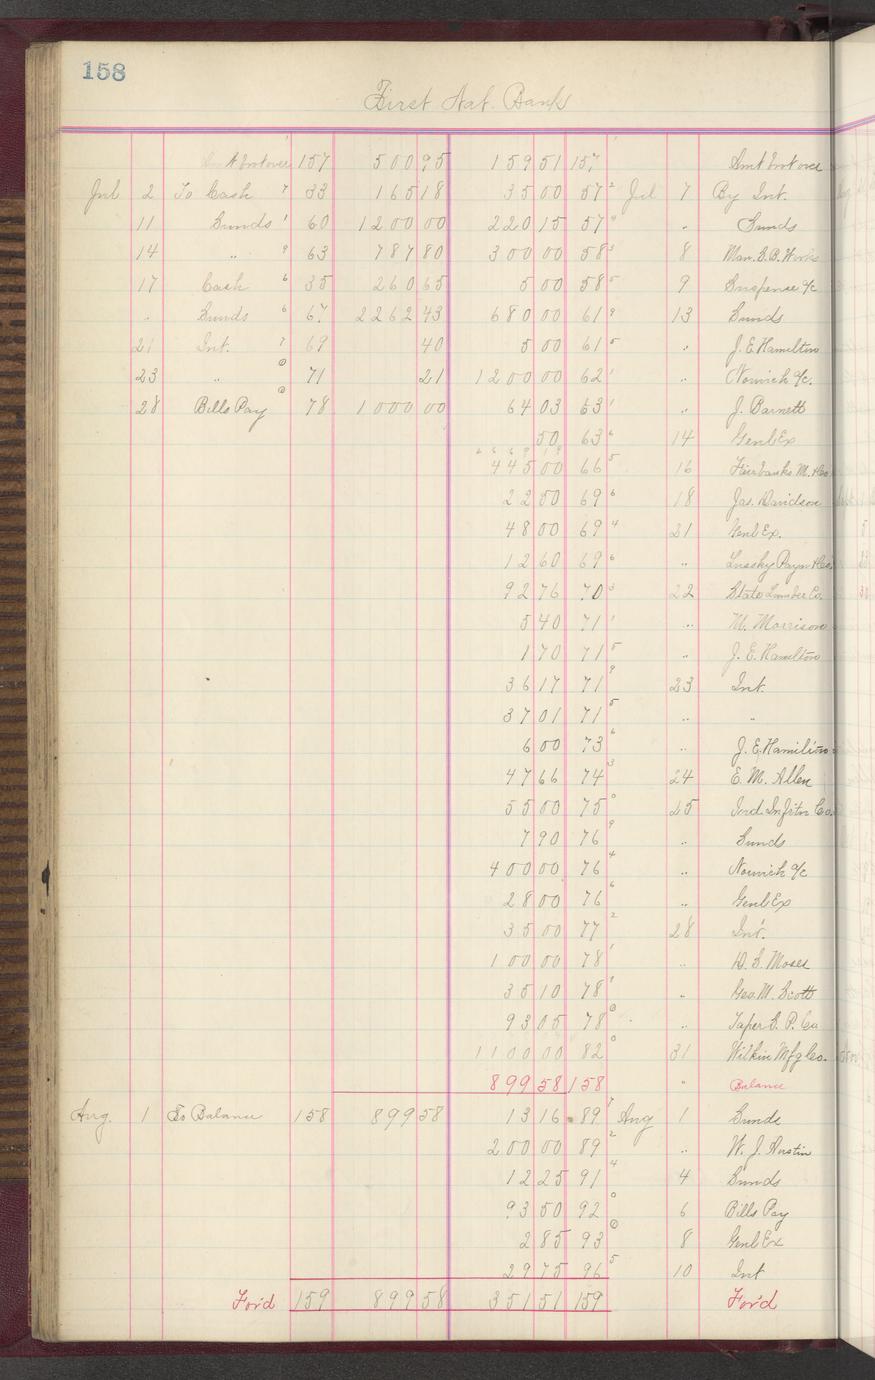 158
First Nat. Bank
Amt brot over 157 500 95 159 51 157 Amt brot over
Jul 2 To Cash 7 33 165 18 35 00 57 2 Jul 7 By Int.
11 Sunds 1 60 1200 00 220 15 57 9 " Sunds
14 " 9 63 787 80 300 00 58 3 8 Man. S. B. Works
17 Cash 6 35 260 65 5 00 58 5 9 Suspense a/c
" Sunds 6 67 2262 43 680 00 61 9 13 Sunds
21 Int. 7 69 40 5 00 61 5 " J. E. Hamilton
23 " 0 71 21 1200 00 62 1 " Norwich a/c.
28 Bills Pay 0 78 1000 00 64 03 63 1 " J. Barnett
50 63 6 14 Genl Ex
445 00 66 5 16 Fairbanks M. & Co
22 50 69 6 18 Jas. Davidson
48 00 69 4 21 Genl Ex.
12 60 69 6 " Payn & Co.
92 76 70 3 22 State Lumber Co.
5 40 71 1 " M. Morrison
1 70 71 5 " J. E. Hamilton
36 17 71 9 23 Int.
37 01 71 5 " "
6 00 73 6 " J. E. Hamilton
47 66 74 3 24 E. M. Allen
55 00 75 0 25 Co.
7 90 76 9 " Sunds
400 00 76 4 " Norwich a/c
28 00 76 6 " Genl Ex
35 00 77 2 28 Int.
100 00 78 1 " D. S. Moses
35 10 78 9 " Geo. M. Scott
93 05 78 0 " Taper S. P. Co
1100 00 82 0 31 Wilkin Mfg Co.
899 58 158 " Balance
Aug. 1 To Balance 158 899 58 13 16 89 7 Aug 1 Sunds
200 00 89 2 " W. J. Austin
12 25 91 4 4 Sunds
93 50 92 0 6 Bills Pay
2 85 93 0 8 Genl Ex
29 75 96 5 10 Int
For'd 159 899 58 351 51 159 For'd